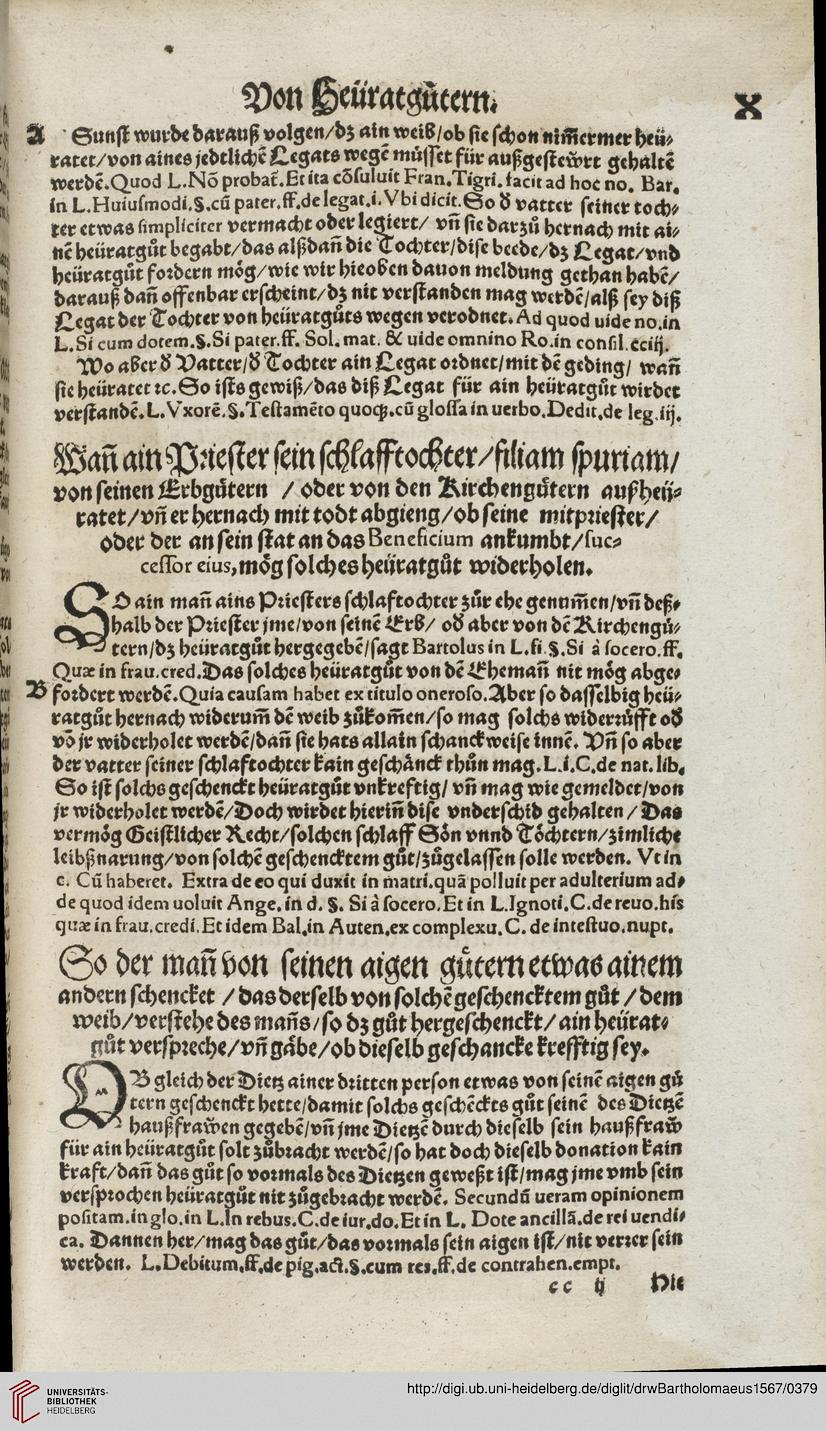 Von Heüratgůtern.
X
A Sunst wurde darauß volgen/dz ain weib/ob sie schon nim̃ermer heü⸗
ratet/von aines jedtlichẽ Legats wegẽ müsset für außgestewrt gehaltẽ
werdẽ.Quod L.Nõ probat̃.Et ita cõsuluit Fran.Tigri.facit ad hoc no. Bar.
in L.Huiusmodi.§.cũ pater.ff.de legat.i.Vbi dicit.So ð vatter seiner toch⸗
ter etwas simpliciter vermacht oder legiert/ vñ sie darzů hernach mit ai⸗
nẽ heüratgůt begabt/das alßdañ die Tochter/dise beede/dz Legat/vnd
heüratgůt fordern mög/wie wir hieoben dauon meldung gethan habẽ/
darauß dañ offenbar erscheint/dz nit verstanden mag werdẽ/alß sey diß
Legat der Tochter von heüratgůts wegen verodnet. Ad quod uide no.in
L.Si cum dotem.§.Si pater.ff. Sol. mat. & uide omnino Ro.in consil.cciij.
Wo aber ð Vatter/ð Tochter ain Legat ordnet/mit dẽ geding/ wañ
sie heüratet ꝛc.So ists gewiß/das diß Legat für ain heüratgůt wirdet
verstandẽ.L.Vxorẽ.§.Testamẽto quoq;.cũ glossa in uerbo.Dedit.de leg.iij.
Wañ ain Priester sein schlafftochter/filiam spuriam/
von seinen Erbgůtern / oder von den Kirchengůtern aufheü⸗
ratet/vñ er hernach mit todt abgieng/ob seine mitpriester/
oder der an sein stat an das Beneficium ankumbt/suc⸗
cessor eius,mög solches heüratgůt widerholen.
SO ain mañ ains Priesters schlaftochter zůr ehe genom̃en/vñ deß⸗
halb der Priester jme/von seinẽ Erb/ oð aber von dẽ Kirchengů⸗
tern/dz heüratgůt hergegebẽ/sagt Bartolus in L.si.§.Si à socero.ff.
Quæ in frau.cred.Das solches heüratgůt von dẽ Ehemañ nit mög abge⸗
B fordert werdẽ.Quia causam habet ex titulo oneroso.Aber so dasselbig heü⸗
ratgůt hernach widerum̃ dẽ weib zůkom̃en/so mag solchs widerrůfft oð
võ jr widerholet werdẽ/dañ sie hats allain schanckweise innẽ. Vñ so aber
der vatter seiner schlaftochter kain geschänck thůn mag.L.i.C.de nat.lib.
So ist solchs geschenckt heüratgůt vnkreftig/ vñ mag wie gemeldet/von
jr widerholet werdẽ/Doch wirdet hieriñ dise vnderschid gehalten / Das
vermög Geistlicher Recht/solchen schlaff Sön vnnd Töchtern/zimliche
leibßnarung/von solchẽ geschencktem gůt/zůgelassen solle werden. Vt in
c. Cũ haberet. Extra de eo qui duxit in matri.quã polluit per adulterium ad⸗
de quod idem uoluit Ange.in d. §. Si à socero.Et in L.Ignoti.C.de reuo.his
quæ in frau.credi.Et idem Bal.in Auten.ex complexu.C. de intestuo.nupt.
So der mañ von seinen aigen gůtern etwas ainem
andern schencket / das derselb von solchẽ geschencktem gůt / dem
weib/verstehe des mañs/so dz gůt hergeschenckt/ ain heürat⸗
gůt verspreche/vñ gäbe/ob dieselb geschancke krefftig sey.
OB gleich der Dietz ainer dritten person etwas von seinẽ aigen gů
tern geschenckt hette/damit solchs geschẽckts gůt seinẽ des Dietzẽ
haußfrawen gegebẽ/vñ jme Dietzẽ durch dieselb sein haußfraw
für ain heüratgůt solt zůbracht werdẽ/so hat doch dieselb donation kain
kraft/dañ das gůt so vormals des Dietzen geweßt ist/mag jme vmb sein
versprochen heüratgůt nit zůgebracht werdẽ. Secundũ ueram opinionem
positam.in glo.in L.In rebus.C.de iur.do.Et in L. Dote ancillã.de rei uendi⸗
ca. Dannen her/mag das gůt/das vormals sein aigen ist/nit verrer sein
werden. L.Debitum.ff.de pig.act.§.cum res.ff.de contrahen.empt.
cc ij Die
UNIVERSITÄTS-
BIBLIOTHEK
HEIDELBERG
http://digi.ub.uni-heidelberg.de/diglit/drwBartholomaeus1567/0379